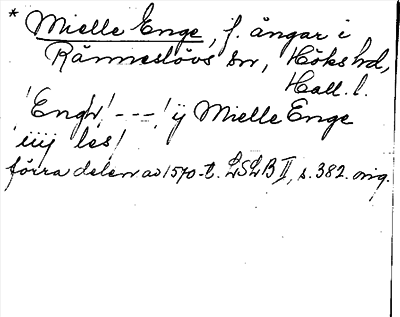 * Mielle Enge, f. ängar i
Ränneslövs sn, Höks hd,
Hall. l.
'Engh' ---! ÿ Mielle Enge
iiij les!
förra delen av 1570-t. LSLB II, s. 382. orig.